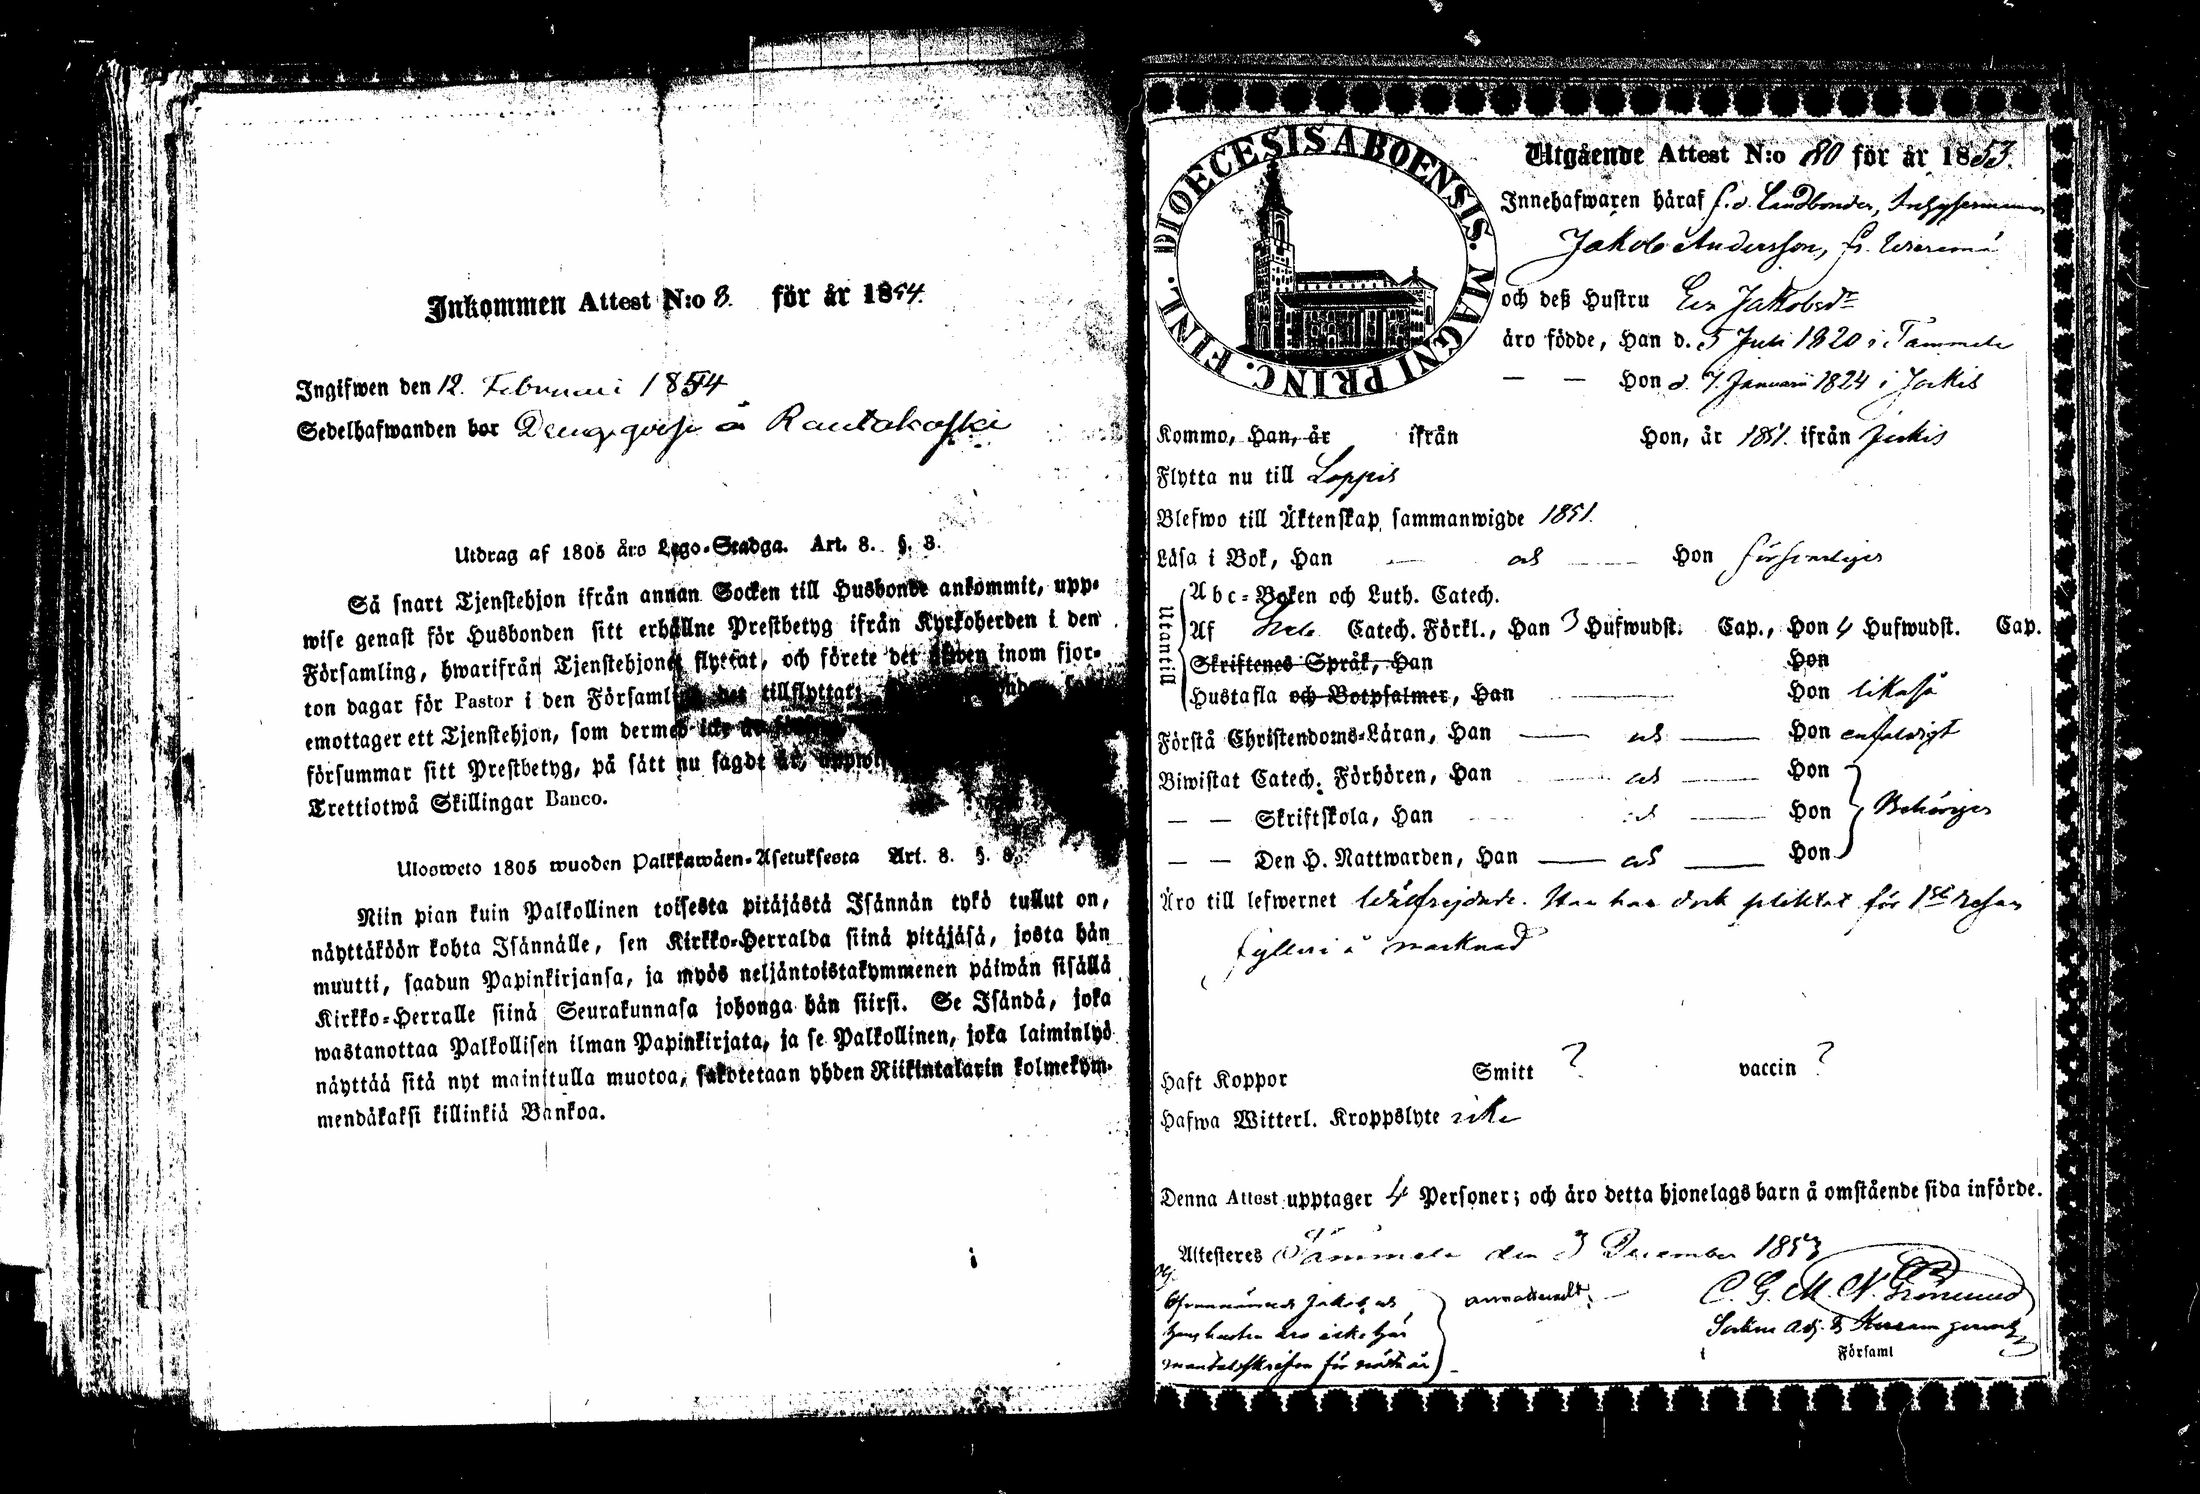 Inkommen Attest N:o 8. för år 1854.
Ingifwen den 12. Februari 1854
Sedelhafwanden bor å Rautakoski
Utdrag af 1805 års Lego-Stadga. Art. 8. §. 8.
Så snart Tjenstehjon ifrån annan Socken till Husbonde ankommit, upp-
wise genast för Husbonden sitt erhållne Prestbetyg ifrån Kyrkoherden i den
Församling, hwarifrån Tjenstehjonet flyttat, och förete det inom fjor-
ton dagar för Pastor i den Församling det tillflyttat;
emottager ett Tjenstehjon, som dermed icke
försummar sitt Prestbetyg, på sätt nu sagdt är, uppwi
Trettiotwå Skillingar Banco.
Ulosweto 1805 wuoden Palkkawäen-Asetuksesta Art. 8. §. 8.
Niin pian kuin Palkollinen toisesta pitäjästä Isännän tykö tullut on,
näyttäköön kohta Isännälle, sen Kirkko-Herralda siinä pitäjäsä, josta hän
muutti, saadun Papinkirjansa, ja myös neljäntoistakymmenen päiwän sisällä
Kirkko-Herralle siinä Seurakunnasa johonga hän siirsi. Se Isändä, joka
wastanottaa Palkollisen ilman Papinkirjata, ja se Palkollinen, joka laiminlyö
näyttää sitä nyt mainitulla muotoa, sakotetaan yhden Riikintalarin kolmekym-
mendäkaksi killinkiä Bankoa.
DIOECESIS ABOENSIS. MAGNI PRINC. FINL.
Utgående Attest N:o 80 för år 1853.
Innehafwaren häraf f.d. Landbonden,
Jakob Andersson, fr.
och deß Hustru Eva Jakobsdr
äro födde, Han d. 5 Juli 1820 i Tammela
— — Hon d. 7 Januarii 1824 i Jockis
Kommo, Han, år ifrån Hon, år 1851 ifrån Jockis
Flytta nu till Loppis
Blefwo till Äktenskap sammanwigde 1851.
Läsa i Bok, Han — och — Hon försvarligen
Utantill
Abc-Boken och Luth. Catech.
Af Catech. Förkl., Han 3 Hufwudst. Cap., Hon 4 Hufwudst. Cap.
Skriftenes Språk, Han Hon
Hustafla och Botpsalmer, Han — Hon likaså
Förstå Christendoms-Läran, Han — och — Hon enfaldigt
Biwistat Catech. Förhören, Han — och — Hon
— — Skriftskola, Han — och — Hon Behörigen
— — Den H. Nattwarden, Han — och — Hon
Äro till lefwernet wälfrejdade. Han har dock pliktat för 1sta resan
fylleri å marknad
Haft Koppor Smitt ? vaccin ?
Hafwa Witterl. Kroppslyte icke
Denna Attest upptager 4 Personer; och äro detta hjonelags barn å omstående sida införde.
Attesteres Tammela den 3 December 1853
Ofvannämnde Jakob och
hans hustru äro icke här
mantalsskrifne för nästa år
C. G. M. N. Grönlund
i Församl